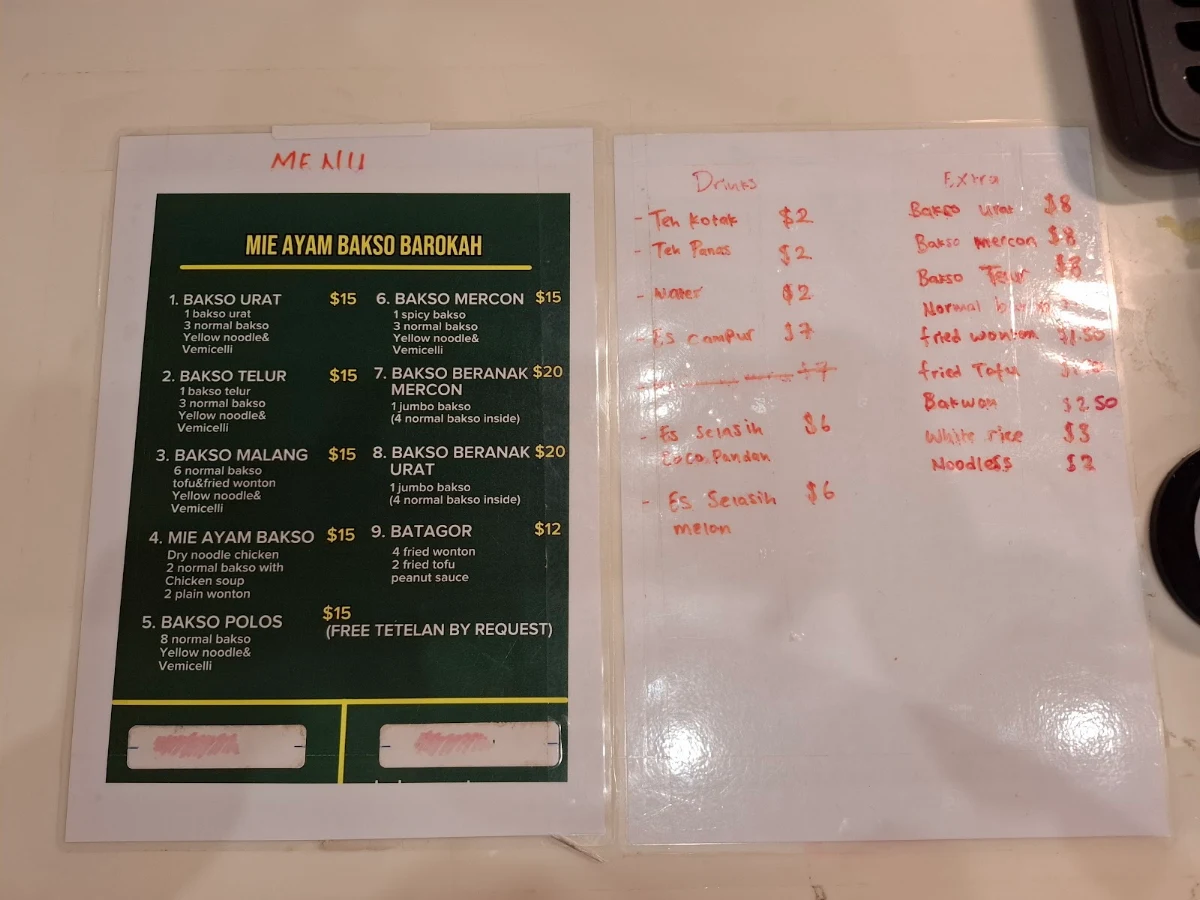 MENU
MIE AYAM BAKSO BAROKAH
1. BAKSO URAT $15
1 bakso urat
3 normal bakso
Yellow noodle&
Vemicelli
2. BAKSO TELUR $15
1 bakso telur
3 normal bakso
Yellow noodle&
Vemicelli
3. BAKSO MALANG $15
6 normal bakso
tofu&fried wonton
Yellow noodle&
Vemicelli
4. MIE AYAM BAKSO $15
Dry noodle chicken
2 normal bakso with
Chicken soup
2 plain wonton
5. BAKSO POLOS $15
8 normal bakso
Yellow noodle&
Vemicelli
(FREE TETELAN BY REQUEST)
6. BAKSO MERCON $15
1 spicy bakso
3 normal bakso
Yellow noodle&
Vemicelli
7. BAKSO BERANAK $20
MERCON
1 jumbo bakso
(4 normal bakso inside)
8. BAKSO BERANAK $20
URAT
1 jumbo bakso
(4 normal bakso inside)
9. BATAGOR $12
4 fried wonton
2 fried tofu
peanut sauce
Drinks
- Teh kotak $2
- Teh Panas $2
- Water $2
- Es campur $7
$7
- Es Selasih $6
Coco Pandan
- Es Selasih $6
melon
Extra
Bakso urat $8
Bakso mercon $8
Bakso Telur $8
Normal
fried wonton $1.50
fried Tofu
Bakwan $2.50
White rice $3
Noodless $2